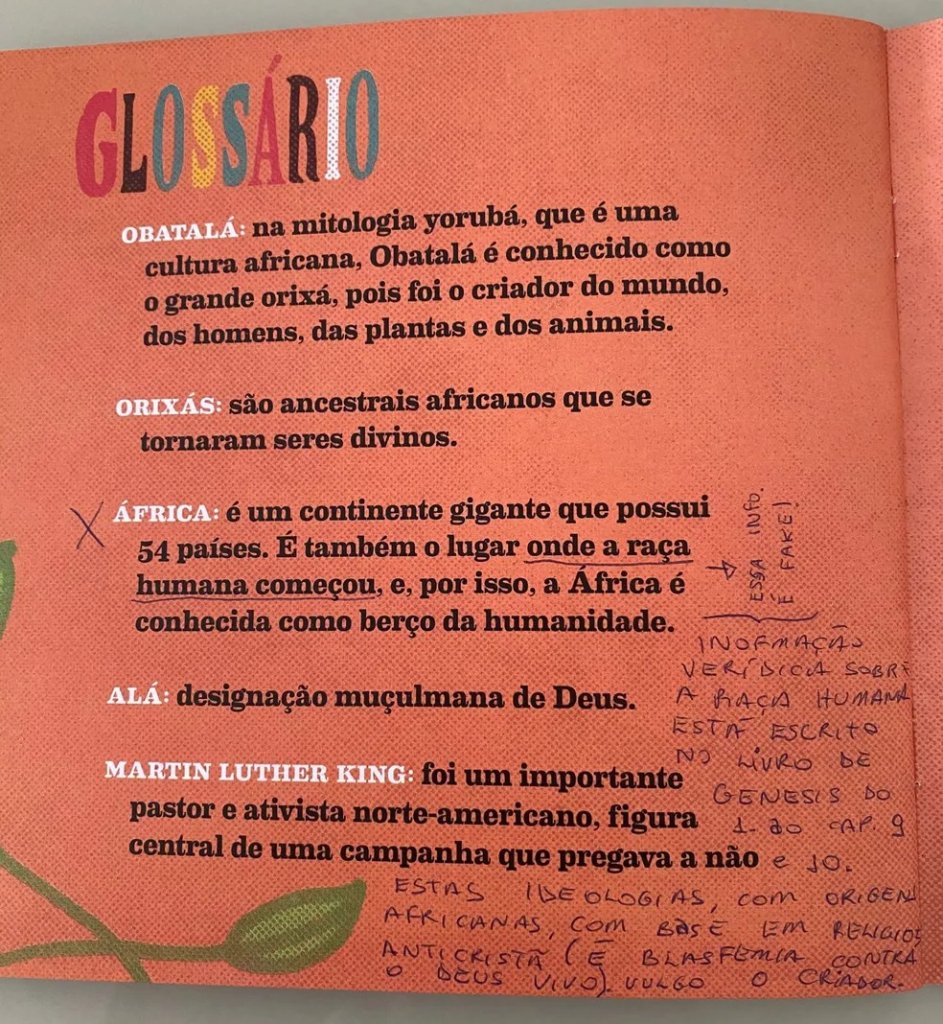 GLOSSÁRIO
OBATALÁ: na mitologia yorubá, que é uma
cultura africana, Obatalá é conhecido como
o grande orixá, pois foi o criador do mundo,
dos homens, das plantas e dos animais.
ORIXÁS: são ancestrais africanos que se
tornaram seres divinos.
X ÁFRICA: é um continente gigante que possui
54 países. É também o lugar onde a raça
humana começou, e, por isso, a África é
conhecida como berço da humanidade.
ESSA INFO.
É FAKE!
INOFMAÇÃO
VERÍDICA SOBRE
A RAÇA HUMANA
ESTÁ ESCRITO
NO LIVRO DE
GENESIS DO
1. ao CAP. 9
e 10.
ALÁ: designação muçulmana de Deus.
MARTIN LUTHER KING: foi um importante
pastor e ativista norte-americano, figura
central de uma campanha que pregava a não
ESTAS IDEOLOGIAS, COM ORIGEN
AFRICANAS, COM BASE EM RELIGIO
ANTICRISTÃ (É BLASFEMIA CONTRA
O DEUS VIVO), VULGO O CRIADOR.